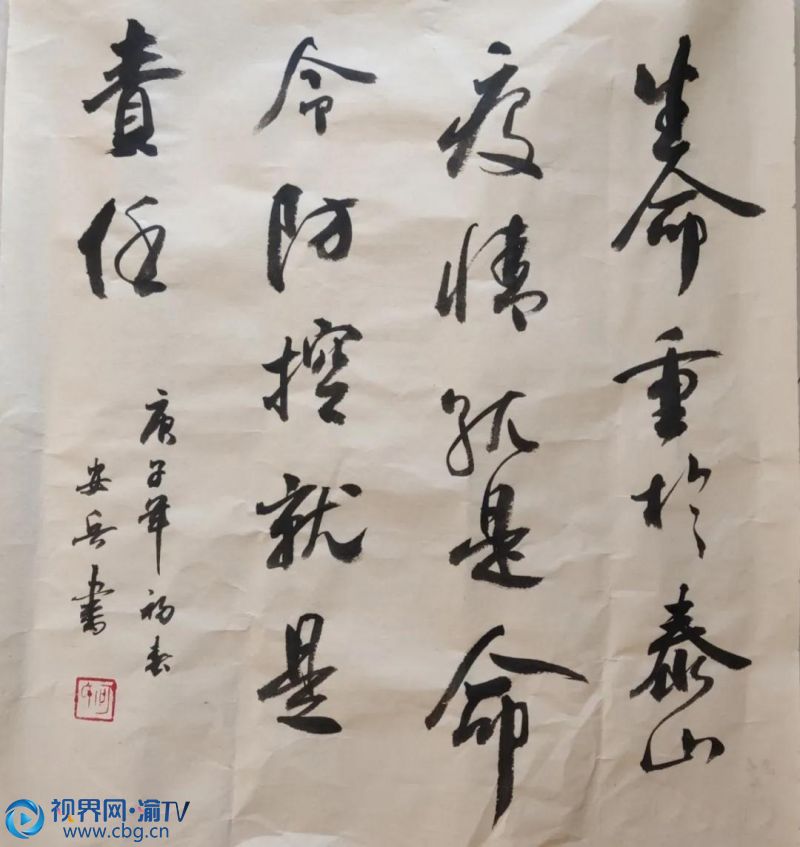 生命重於泰山
疫情就是命
令防控就是
責任
庚子年初春
安兵書
视界网·渝TV
www.cbg.cn